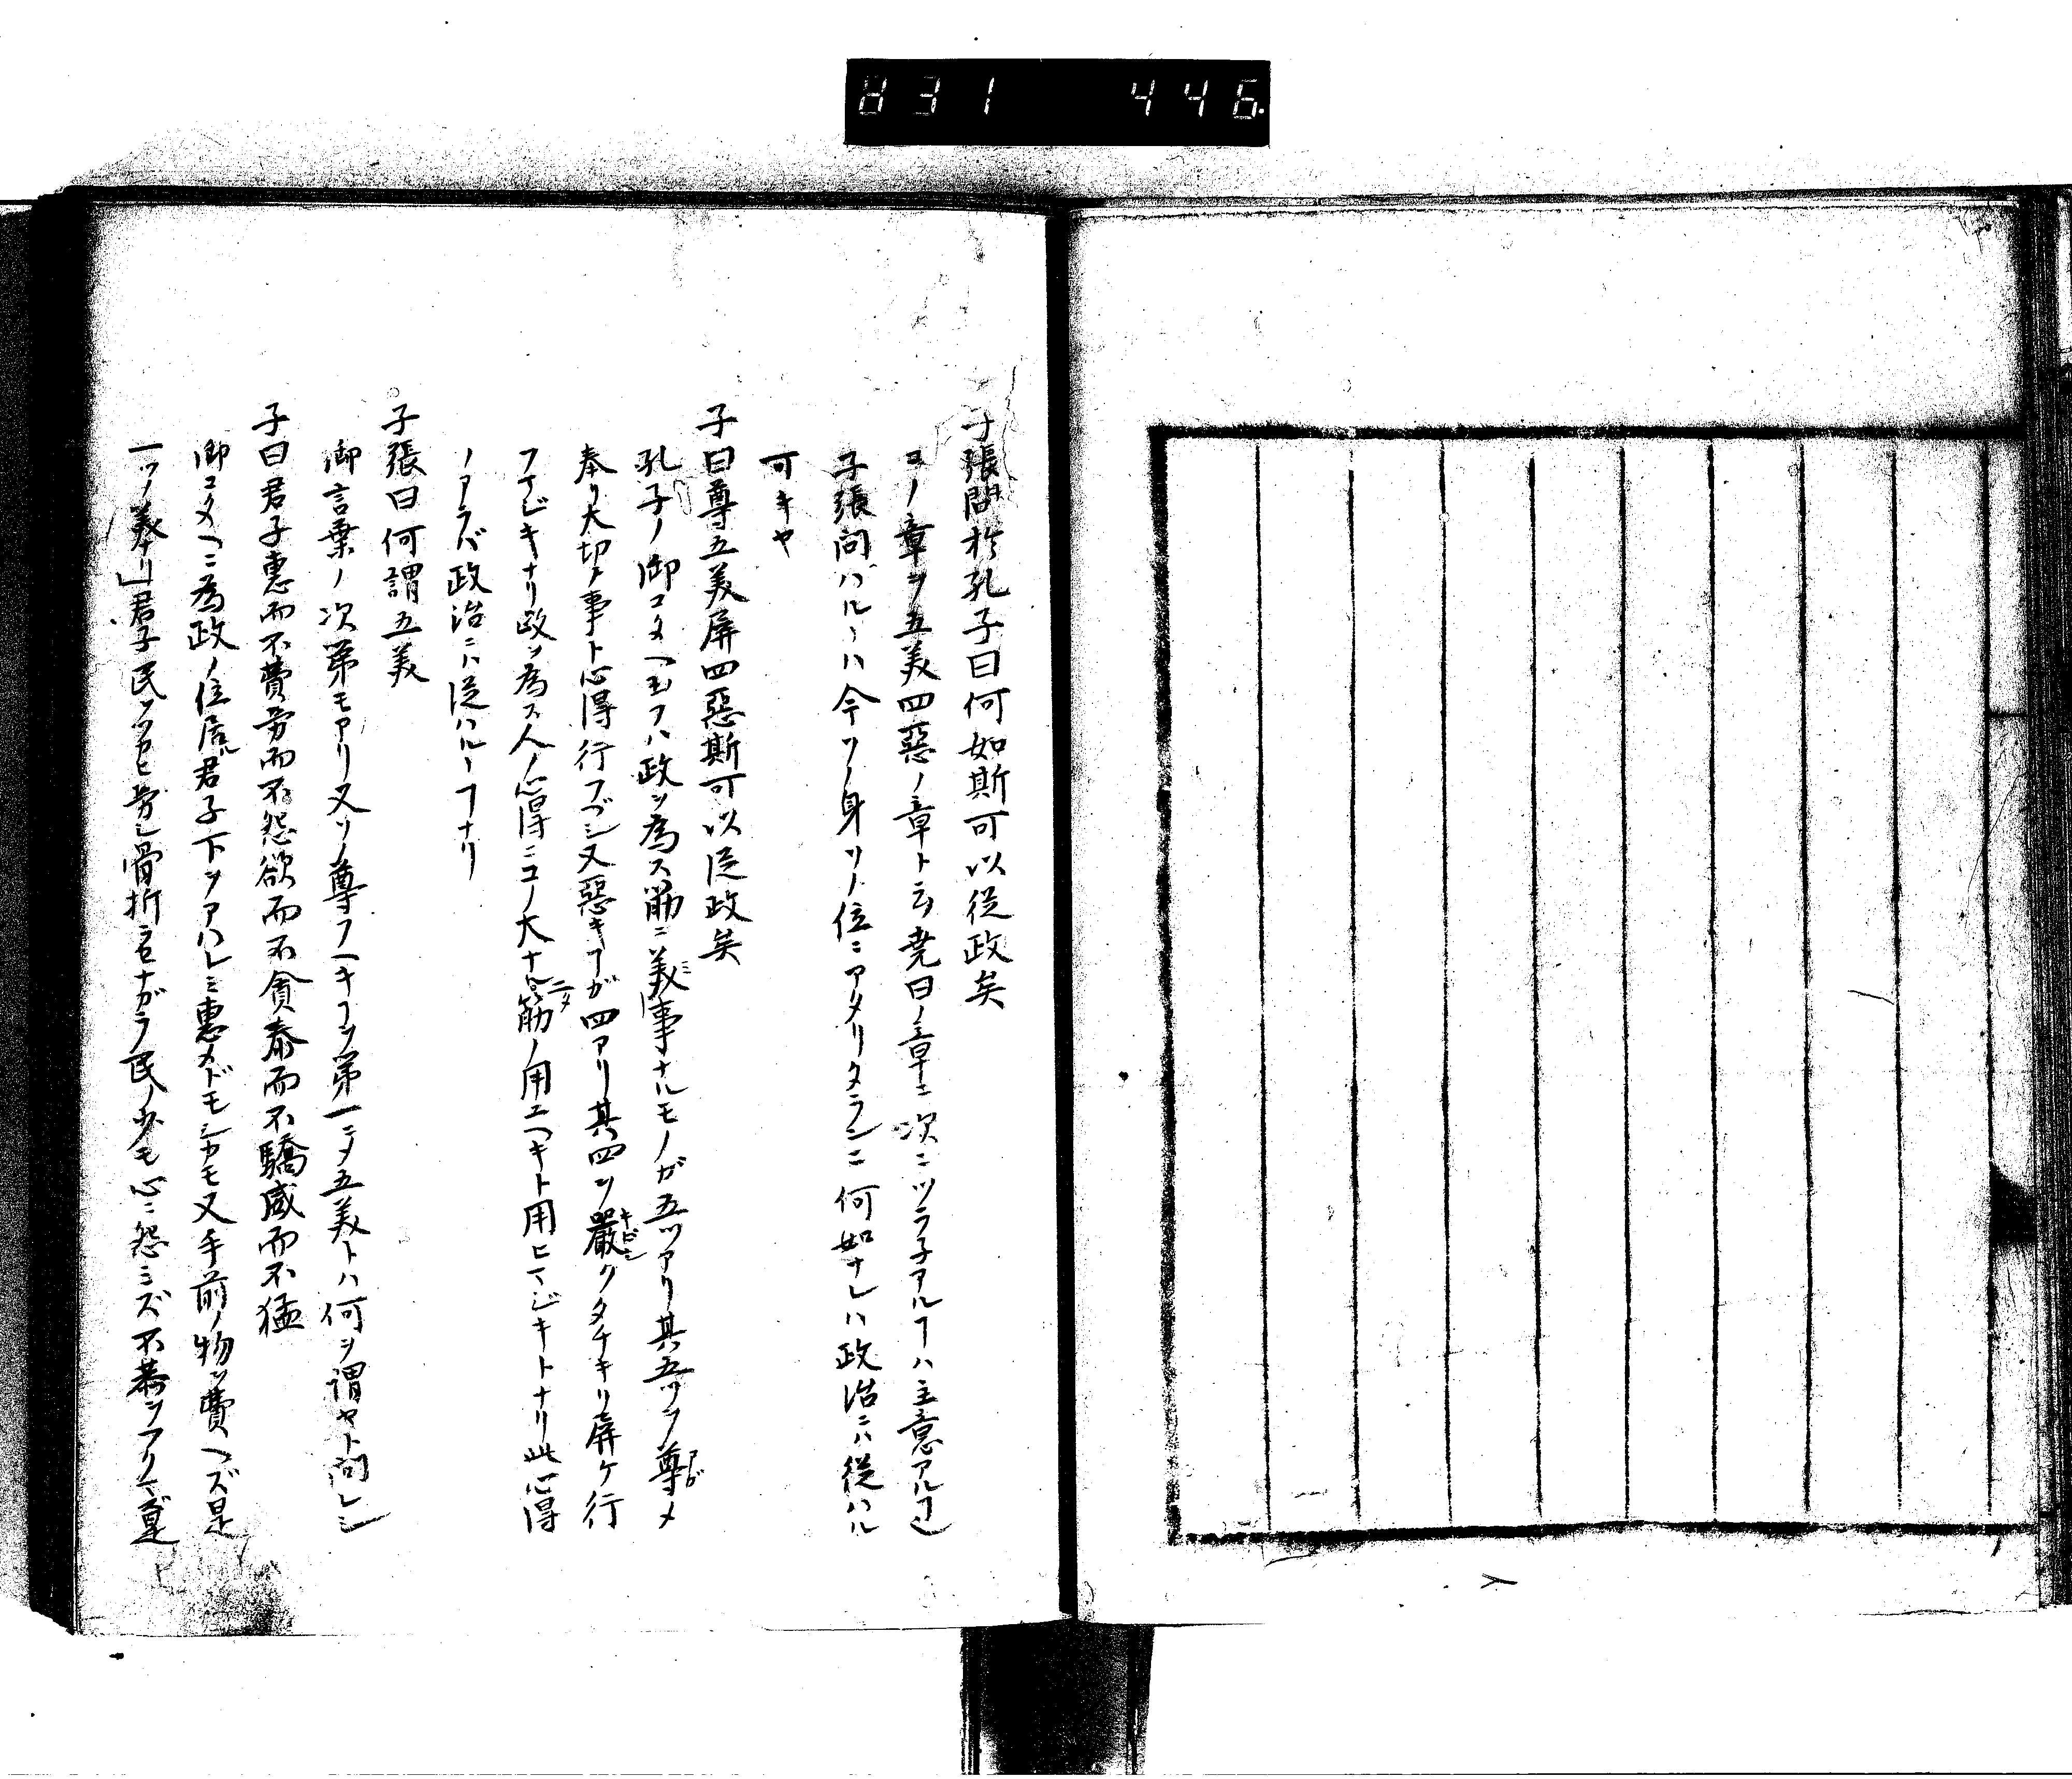 831 446
子張問於孔子曰何如斯可以從政矣
コノ章ヲ五美四惡ノ章ト云堯曰ノ章ニ次ニツラ子アルヿハ主意アルヿ
子張問ハルヽハ今ソノ身ソノ位ニアタリタランニ何如ナレハ政治ニハ從ハル
可キヤ
子曰尊五美屏四惡斯可以從政矣
孔子ノ御コタヘ玉フハ政ヲ為ス筋ニ美事ナルモノガ五ツアリ其五ツヲ尊メ
奉リ大切ノ事ト心得行フベシ又惡キヿガ四アリ其四ツ嚴クタチキリ屏ケ行
フマジキナリ政ヲ為ス人ノ心得ニコノ大ナル筋ノ用ユヘキト用ヒマジキトナリ此心得
ノアラバ政治ニハ從ハルヽヿナリ
子張曰何謂五美
御言葉ノ次第モアリ又ソノ尊フヘキヿヲ第一ニメ五美トハ何ヲ謂ヤト問レシ
子曰君子惠而不費勞而不怨欲而不貪泰而不驕威而不猛
御コタヘニ為政ノ位居ル君子下ヲアハレミ惠メドモシカモ又手前ノ物ヲ費ヘズ是
一ツノ美ナリ君子民ヲツカヒ勞シ骨折ラセナガラ民ノ少モ心ニ怨ミズ